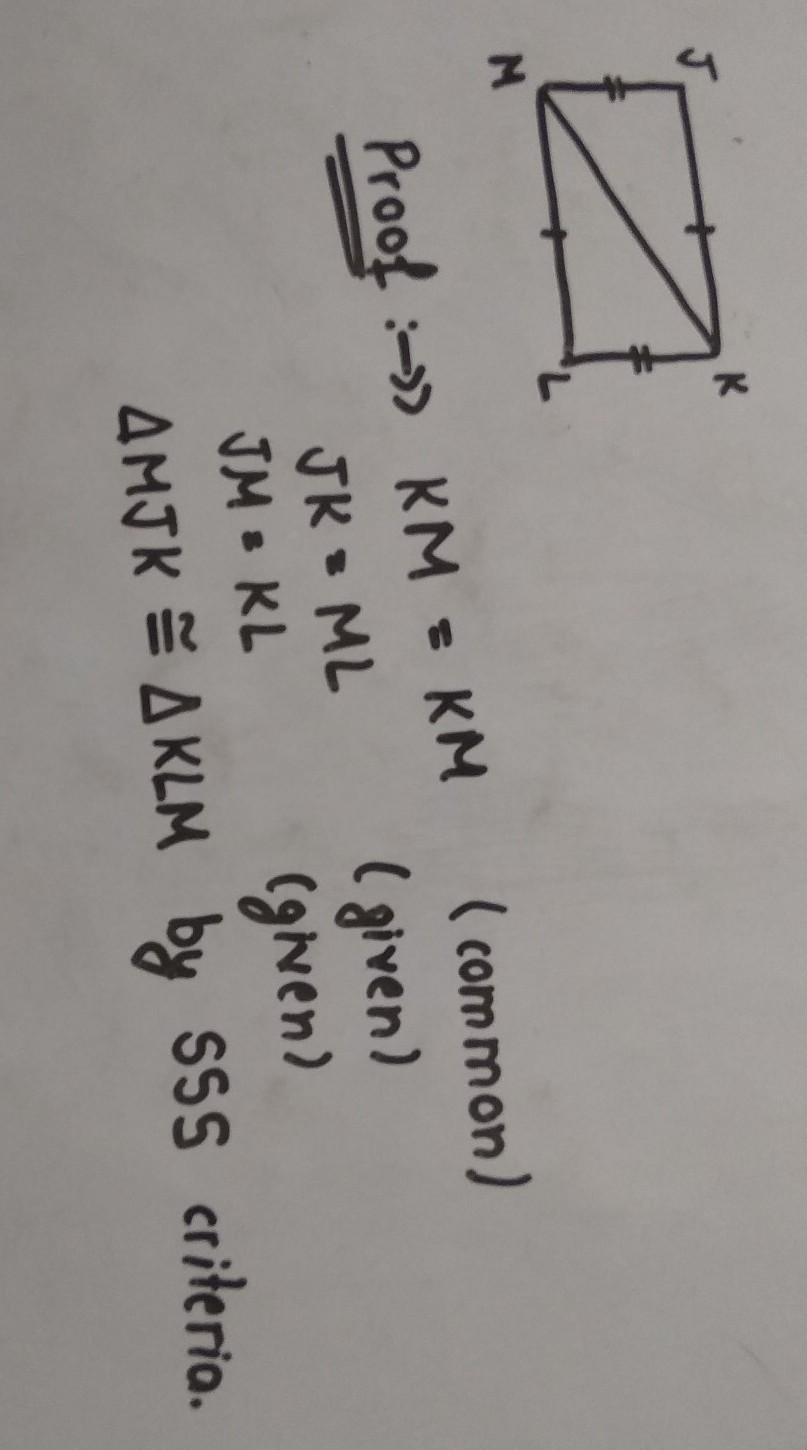 J K
M L
Proof :→» KM = KM (common)
JK = ML (given)
JM = KL (given)
ΔMJK ≅ ΔKLM by SSS criteria.